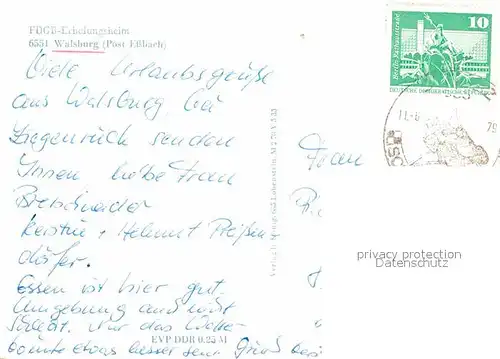 FDGB-Erholungsheim
6551 Walsburg (Post Eßbach)
Viele Urlaubsgrüße
aus Walsburg bei
Ziegenrück senden
Ihnen liebe Frau
Kerstin + Helmut Preißen
dörfer.
Essen ist hier gut.
Umgebung auch nicht
schlecht. Nur das Wetter
könnte etwas besser sein. Gruß
EVP DDR 0.25 M
Frau
10
Berlin, Rathausstraße
DEUTSCHE DEMOKRATISCHE REPUBLIK
79
privacy protection
Datenschutz